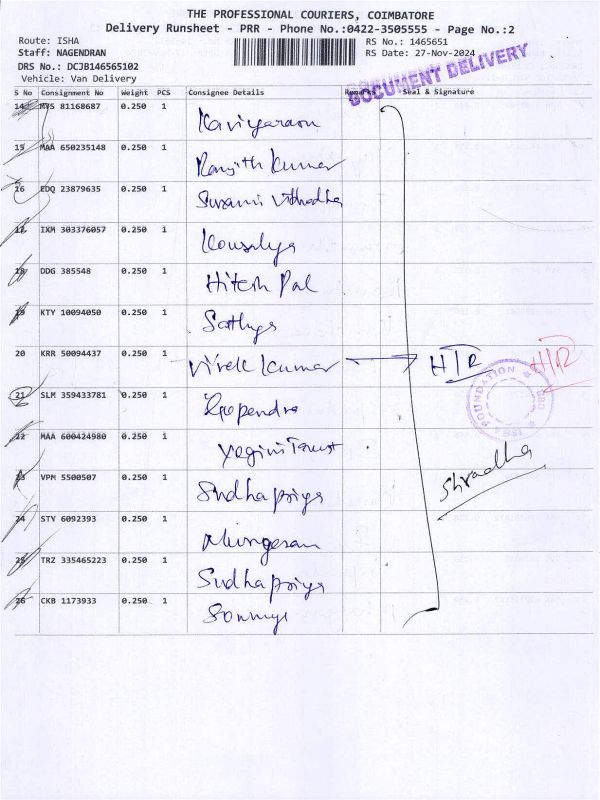 THE PROFESSIONAL COURIERS, COIMBATORE
Delivery Runsheet - PRR - Phone No.:0422-3505555 - Page No.:2
Route: ISHA
RS No.: 1465651
Staff: NAGENDRAN
RS Date: 27-Nov-2024
DRS No.: DCJB146565102
Vehicle: Van Delivery
DOCUMENT DELIVERY
S No Consignment No Weight PCS Consignee Details Remarks Seal & Signature
14 MVS 81168687 0.250 1 Kaviyarasu
15 MAA 650235148 0.250 1 Ranjith Kumar
16 EDQ 23879635 0.250 1
17 IXM 303376057 0.250 1 Kousalya
18 DDG 385548 0.250 1 Hitesh Pal
19 KTY 10094050 0.250 1 Sathya
20 KRR 50094437 0.250 1 Vivek Kumar H/R H/R
21 SLM 359433781 0.250 1 Gopendra
22 MAA 600424980 0.250 1 Yogini Tanust
23 VPM 5500507 0.250 1 Sudha priya
24 STY 6092393 0.250 1 Murugesan
25 TRZ 335465223 0.250 1 Sudha priya
26 CKB 1173933 0.250 1 Sowmya
ISHA FOUNDATION
Shradha